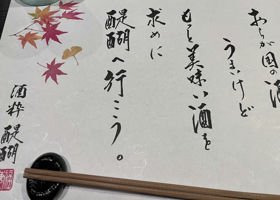 わが国の酒
うまいけど
もっと美味い酒を
求めに
醍醐へ行こう。
酒粋 醍醐